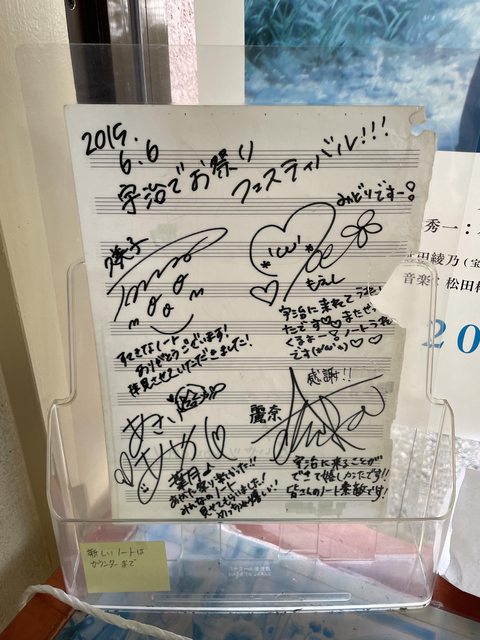 2015.
6.6
宇治でお祭り
フェスティバル!!!
みどりですー!
もえし
宇治に来れてうれし
たです♡♡またぜっ
くるよー!ノートうれ
です(>ω<)♡♡
緑子
すてきなノート
ありがとうございます!
拝見させていただきました!
あさい
あやか
葉月♪
あがた祭り来たっ!!
みんなのノート
見せてもらいました!
めっちゃ嬉しい!
感謝!!
麗奈
宇治に来ることが
できて嬉しかったです!!
皆さんのノート素敵です!
秀一:
田綾乃(宝
音楽:松田
20
新しいノートは
カウンターまで